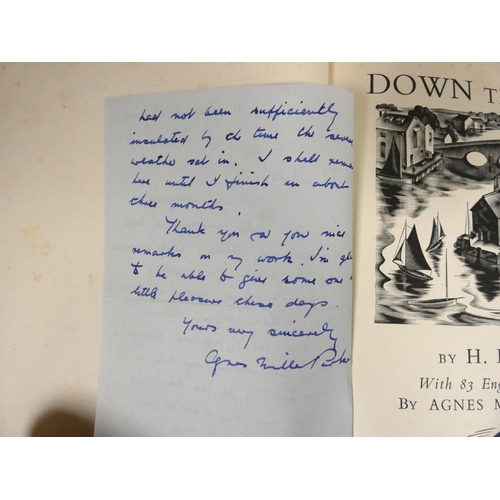 had not been sufficiently
insulated by the time the seve
weather set in. I shall rema
here until I finish in about
three months.
Thank you for your nice
remarks on my work. I'm gl
to be able to give some one
little pleasure these days.
Yours very sincerely
Agnes Miller Parke
DOWN T
BY H.
With 83 Eng
BY AGNES M